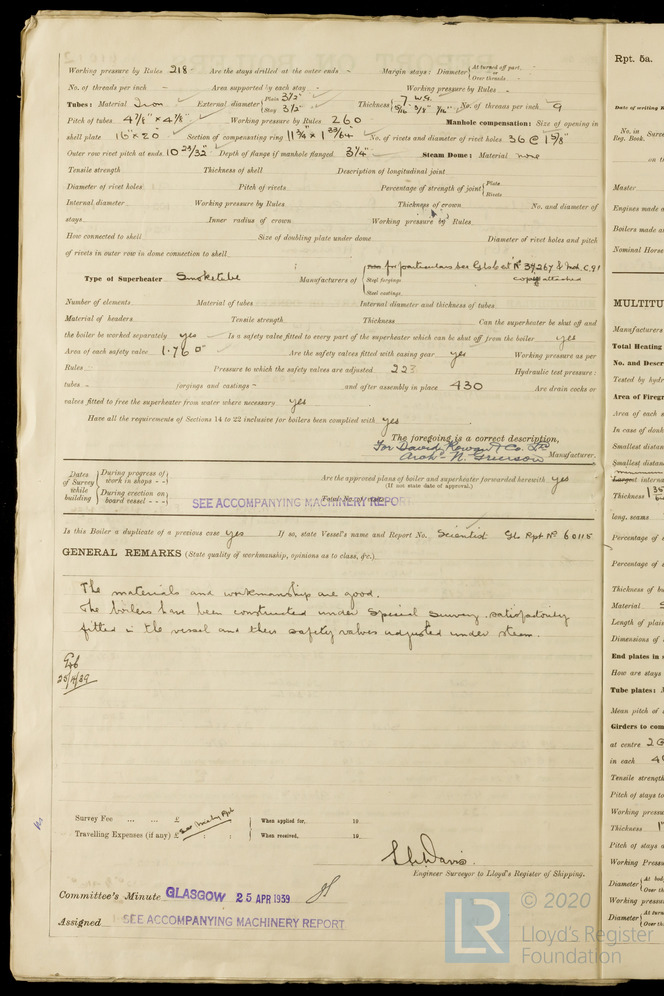 Working pressure by Rules 218 Are the stays drilled at the outer ends - Margin stays: Diameter { At turned off part, or Over threads -
No. of threads per inch - Area supported by each stay - Working pressure by Rules -
Tubes: Material Iron External diameter { Plain 3½" Stay 3½" Thickness { 7 W.G. 5/16" 3/8" No. of threads per inch 9
Pitch of tubes 4⅞" × 4⅞" Working pressure by Rules 260 Manhole compensation: Size of opening in
shell plate 16" × 20" Section of compensating ring No. of rivets and diameter of rivet holes 36 @
Outer row rivet pitch at ends 10 23/32" Depth of flange if manhole flanged 3¼" Steam Dome: Material none
Tensile strength Thickness of shell Description of longitudinal joint
Diameter of rivet holes Pitch of rivets Percentage of strength of joint { Plate Rivets
Internal diameter Working pressure by Rules Thickness of crown No. and diameter of
stays Inner radius of crown Working pressure by Rules
How connected to shell Size of doubling plate under dome Diameter of rivet holes and pitch
of rivets in outer row in dome connection to shell
Type of Superheater Smoketube Manufacturers of { for particulars see Gls Cert Nº 34267 & Ind. C.91
Steel forgings copy attached
Steel castings
Number of elements Material of tubes Internal diameter and thickness of tubes
Material of headers Tensile strength Thickness Can the superheater be shut off and
the boiler be worked separately yes Is a safety valve fitted to every part of the superheater which can be shut off from the boiler yes
Area of each safety valve 1.760" Are the safety valves fitted with easing gear yes Working pressure as per
Rules Pressure to which the safety valves are adjusted 223 Hydraulic test pressure:
tubes - forgings and castings - and after assembly in place 430 Are drain cocks or
valves fitted to free the superheater from water where necessary yes
Have all the requirements of Sections 14 to 22 inclusive for boilers been complied with yes
The foregoing is a correct description,
For David Rowan & Co. Ltd
Archd N. Grierson Manufacturer.
Dates of Survey while building { During progress of work in shops - - Are the approved plans of boiler and superheater forwarded herewith yes
(If not state date of approval.)
During erection on board vessel - - - SEE ACCOMPANYING MACHINERY REPORT Total No. of visits
Is this Boiler a duplicate of a previous case yes If so, state Vessel's name and Report No. Scientist Gls Rpt Nº 60115
GENERAL REMARKS (State quality of workmanship, opinions as to class, &c.)
The materials and workmanship are good.
The boilers have been constructed under Special Survey, satisfactorily
fitted in the vessel and their safety valves adjusted under steam.
25/4/39
Survey Fee ... ... £ : : When applied for, 19
Travelling Expenses (if any) £ See Mchy Rpt : : When received, 19
Engineer Surveyor to Lloyd's Register of Shipping.
Committee's Minute GLASGOW 25 APR 1939
Assigned SEE ACCOMPANYING MACHINERY REPORT
LR © 2020
Lloyd's Register
Foundation
Rpt. 5a.
Date of writing R
No. in Surve
Reg. Book.
on t
Master
Engines made a
Boilers made a
Nominal Horse
MULTITU
Manufacturers
Total Heating
No. and Descr
Tested by hydr
Area of Firegr
Area of each s
In case of doub
Smallest distan
Smallest distan
Largest interna
Thickness
long. seams
Percentage of s
Percentage of s
Thickness of b
Material S
Length of plain
Dimensions of
End plates in s
How are stays
Tube plates: M
Mean pitch of s
Girders to com
at centre 2
in each 4
Tensile strength
Pitch of stays to
Working pressu
Thickness 1"
Pitch of stays a
Working Pressu
Diameter { At bod or Over th
Working pressu
Diameter { At tur or Over th